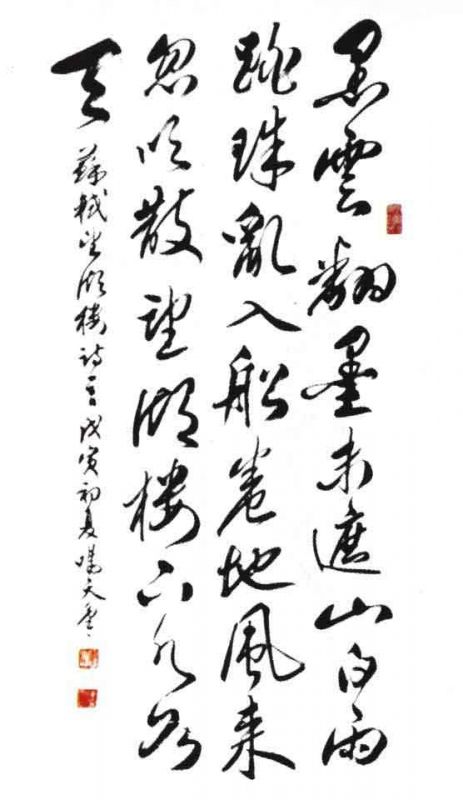 黑雲翻墨未遮山白雨
跳珠亂入船卷地風來
忽吹散望湖樓下水如
天
蘇軾望湖樓詩 戊寅初夏